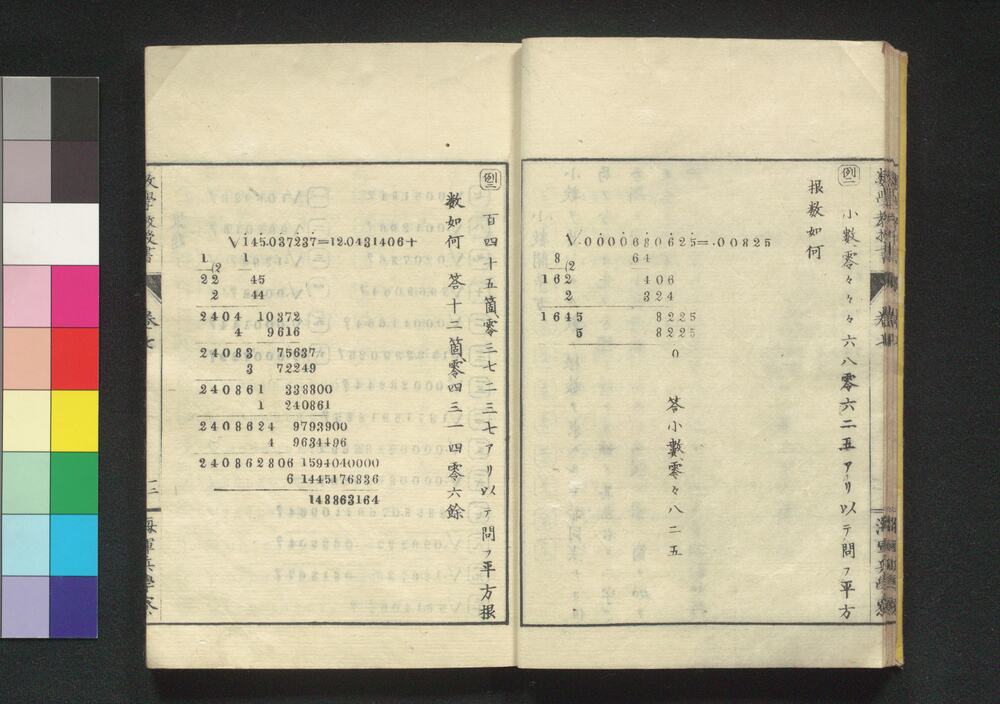 例二
小數、零々々々六八零六二五アリ以テ問フ平方
根數如何
√.0000680625=.00825
8 64
(2
162 406
2 324
1645 8225
5 8225
0
答小數、零々八二五
例三
百四十五箇、零三七二三七アリ以テ問フ平方根
數如何 答十二箇、零四三一四零六餘
√145.037237=12.0431406+
1 1
(2
22 45
2 44
2404 10372
4 9616
24083 75637
3 72249
240861 338800
1 240861
2408624 9793900
4 9634496
240862806 1594040000
6 1445176836
148863164
數學教授書
卷七
三
海軍兵學寮